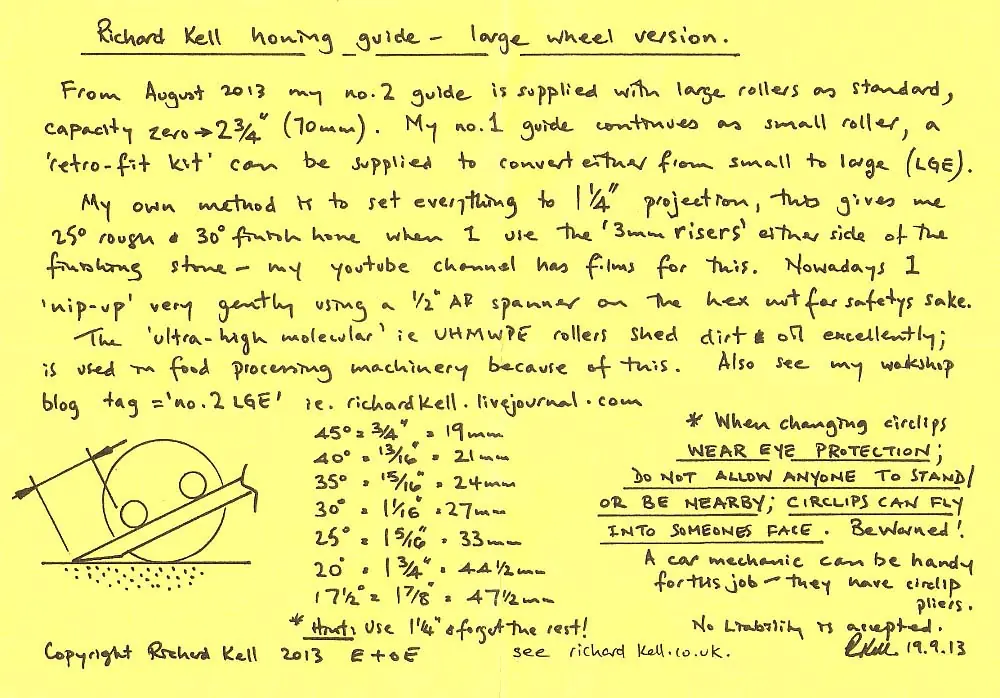 Richard Kell honing guide - large wheel version.
From August 2013 my no.2 guide is supplied with large rollers as standard,
capacity zero→2 3/4" (70mm). My no.1 guide continues as small roller, a
'retro-fit kit' can be supplied to convert either from small to large (LGE).
My own method is to set everything to 1 1/4" projection, this gives me
25° rough & 30° finish hone when I use the '3mm risers' either side of the
finishing stone - my youtube channel has films for this. Nowadays I
'nip-up' very gently using a 1/2" AF spanner on the hex nut for safetys sake.
The 'ultra-high molecular' ie UHMWPE rollers shed dirt & oil excellently;
is used in food processing machinery because of this. Also see my workshop
blog tag = 'no.2 LGE' ie. richardkell.livejournal.com
45° = 3/4" = 19mm
40° = 13/16" = 21mm
35° = 15/16" = 24mm
30° = 1 1/16" = 27mm
25° = 1 5/16" = 33mm
20° = 1 3/4" = 44 1/2mm
17 1/2° = 1 7/8" = 47 1/2mm
* Hint: Use 1 1/4" & forget the rest!
* When changing circlips
WEAR EYE PROTECTION;
DO NOT ALLOW ANYONE TO STAND/
OR BE NEARBY; CIRCLIPS CAN FLY
INTO SOMEONES FACE. Be Warned!
A car mechanic can be handy
for this job - they have circlip
pliers.
No Liability is accepted.
RKell 19.9.13
Copyright Richard Kell 2013 E + OE
see richardkell.co.uk.